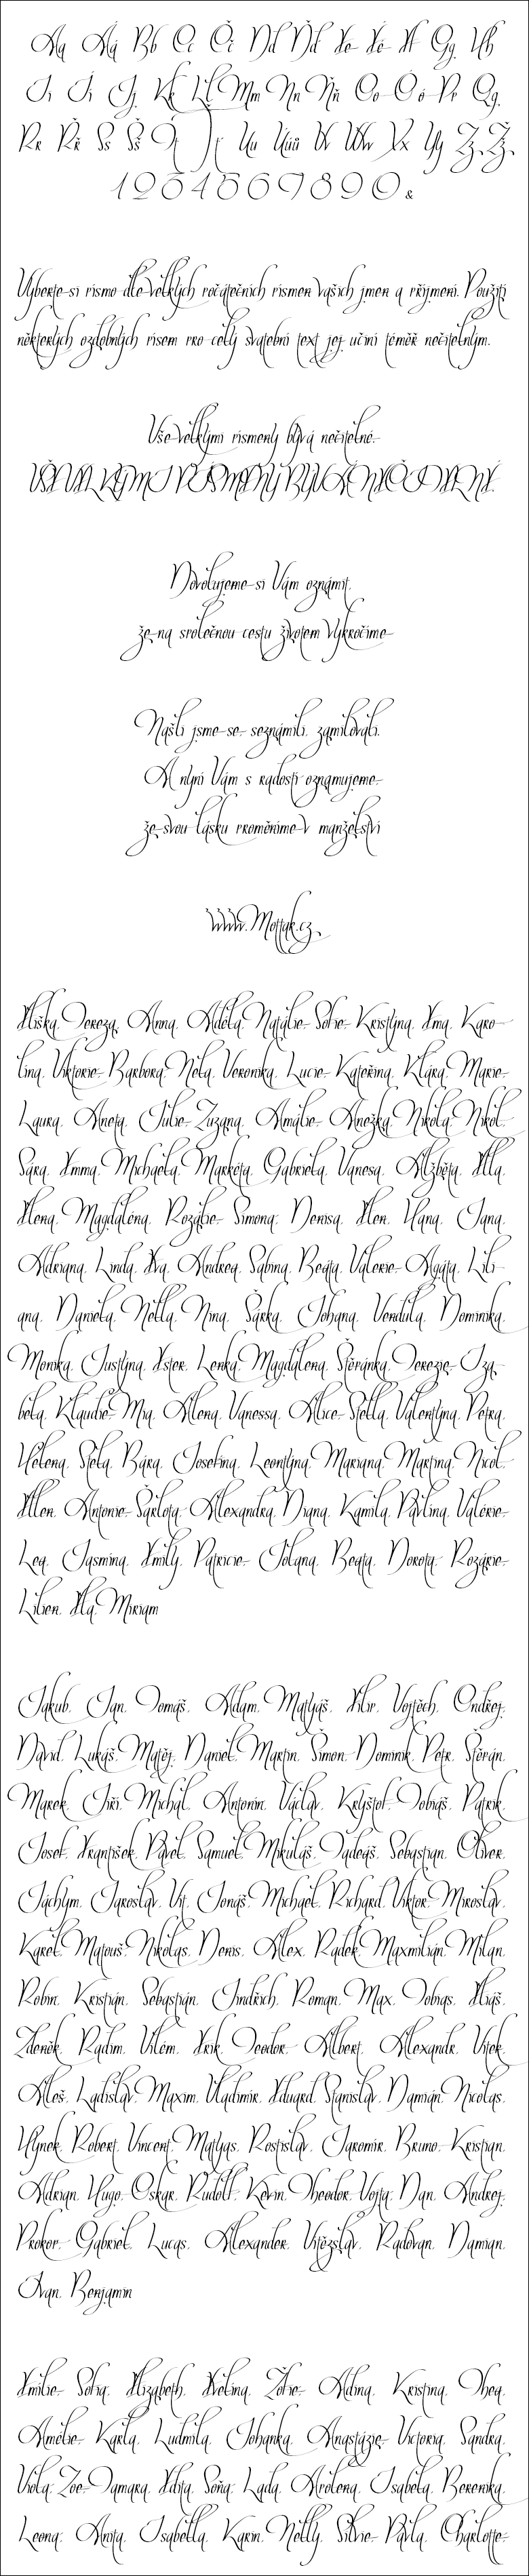 Aa Áá Bb Cc Čč Dd Ďď Ee Éé Ff Gg Hh
Ii Íí Jj Kk Ll Mm Nn Ňň Oo Óó Pp Qq
Rr Řř Ss Šš Ťť Tt Uu Úúů Vv Ww Xx Yy Zz Žž
1234567890 &
Vyberte si písmo dle velkých počátečních písmen vašich jmen a příjmení. Použití
některých ozdobných písem pro celý svatební text jej učiní téměř nečitelným.
Vše velkými písmeny bývá nečitelné.
VŠE VELKÝMI PÍSMENY BÝVÁ NEČITELNÉ.
Dovolujeme si Vám oznámit,
že na společnou cestu životem vykročíme
Našli jsme se, seznámili, zamilovali.
A nyní Vám s radostí oznamujeme,
že svou lásku proměníme v manželství
www.Mottak.cz
Eliška, Tereza, Anna, Adéla, Natálie, Sofie, Kristýna, Ema, Karo-
lína, Viktorie, Barbora, Nela, Veronika, Lucie, Kateřina, Klára, Marie,
Laura, Aneta, Julie, Zuzana, Amálie, Anežka, Nikola, Nikol,
Sára, Emma, Michaela, Markéta, Gabriela, Vanesa, Alžběta, Ella,
Elena, Magdaléna, Rozálie, Simona, Denisa, Elen, Hana, Jana,
Adriana, Linda, Eva, Andrea, Sabina, Beáta, Valerie, Agáta, Lili-
ana, Daniela, Nella, Nina, Šárka, Johana, Vendula, Dominika,
Monika, Justýna, Ester, Lenka, Magdalena, Štěpánka, Terezie, Iza-
bela, Klaudie, Mia, Alena, Vanessa, Alice, Stella, Valentýna, Petra,
Helena, Stela, Bára, Josefína, Leontýna, Mariana, Martina, Nicol,
Ellen, Antonie, Šarlota, Alexandra, Diana, Kamila, Pavlína, Valérie,
Lea, Jasmína, Emily, Patricie, Jolana, Beata, Dorota, Rozárie,
Lilien, Ela, Miriam
Jakub, Jan, Tomáš, Adam, Matyáš, Filip, Vojtěch, Ondřej,
David, Lukáš, Matěj, Daniel, Martin, Šimon, Dominik, Petr, Štěpán,
Marek, Jiří, Michal, Antonín, Václav, Kryštof, Tobiáš, Patrik,
Josef, František, Pavel, Samuel, Mikuláš, Tadeáš, Sebastian, Oliver,
Jáchym, Jaroslav, Vít, Jonáš, Michael, Richard, Viktor, Miroslav,
Karel, Matouš, Nikolas, Denis, Alex, Radek, Maxmilián, Milan,
Robin, Kristián, Sebastián, Jindřich, Roman, Max, Tobias, Eliáš,
Zdeněk, Radim, Vilém, Erik, Teodor, Albert, Alexandr, Vítek,
Aleš, Ladislav, Maxim, Vladimír, Eduard, Stanislav, Damián, Nicolas,
Hynek, Robert, Vincent, Matyas, Rostislav, Jaromír, Bruno, Kristian,
Adrian, Hugo, Oskar, Rudolf, Kevin, Theodor, Vojta, Dan, Andrej,
Prokop, Gabriel, Lucas, Alexander, Vítězslav, Radovan, Damian,
Ivan, Benjamin
Emílie, Sofia, Elizabeth, Evelína, Žofie, Adina, Kristina, Thea,
Amélie, Karla, Ludmila, Johanka, Anastázie, Victoria, Sandra,
Viola, Zoe, Tamara, Edita, Soňa, Lada, Apolena, Isabela, Berenika,
Leona, Anita, Isabella, Karin, Nelly, Silvie, Pavla, Charlotte,